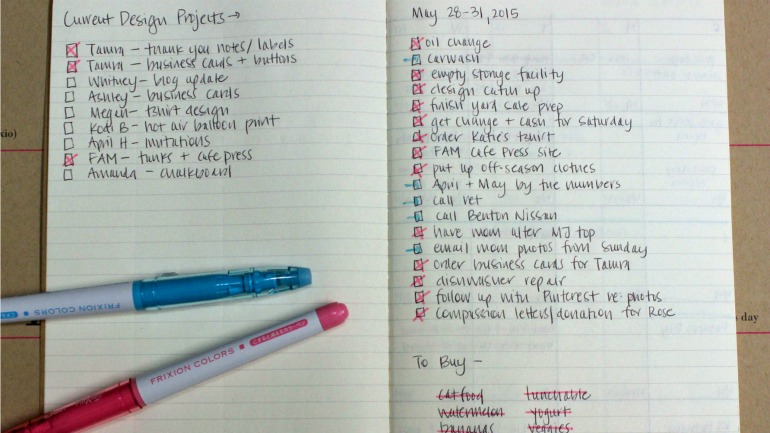 Current Design Projects →
Tamra - thank you notes/labels
Tamra - business cards + buttons
Whitney - blog update
Ashley - business cards
Megan - tshirt design
Kodi B - hot air balloon print
April H - invitations
FAM - tanks + cafe press
Amanda - chalkboard
FRIXION COLORS
FRIXION COLORS
May 28-31, 2015
oil change
carwash
empty storage facility
design catch up
finish yard sale prep
get change + cash for Saturday
order Katie's tshirt
FAM Cafe Press site
put up off-season clothes
April + May by the numbers
call vet
call Benton Nissan
have mom alter MJ top
email mom photos from Sunday
order business cards for Tamra
dishwasher repair
follow up with Pinterest re: photos
compassion letters/donation for Rose
To Buy -
cat food lunchable
watermelon yogurt
bananas veggies
s day